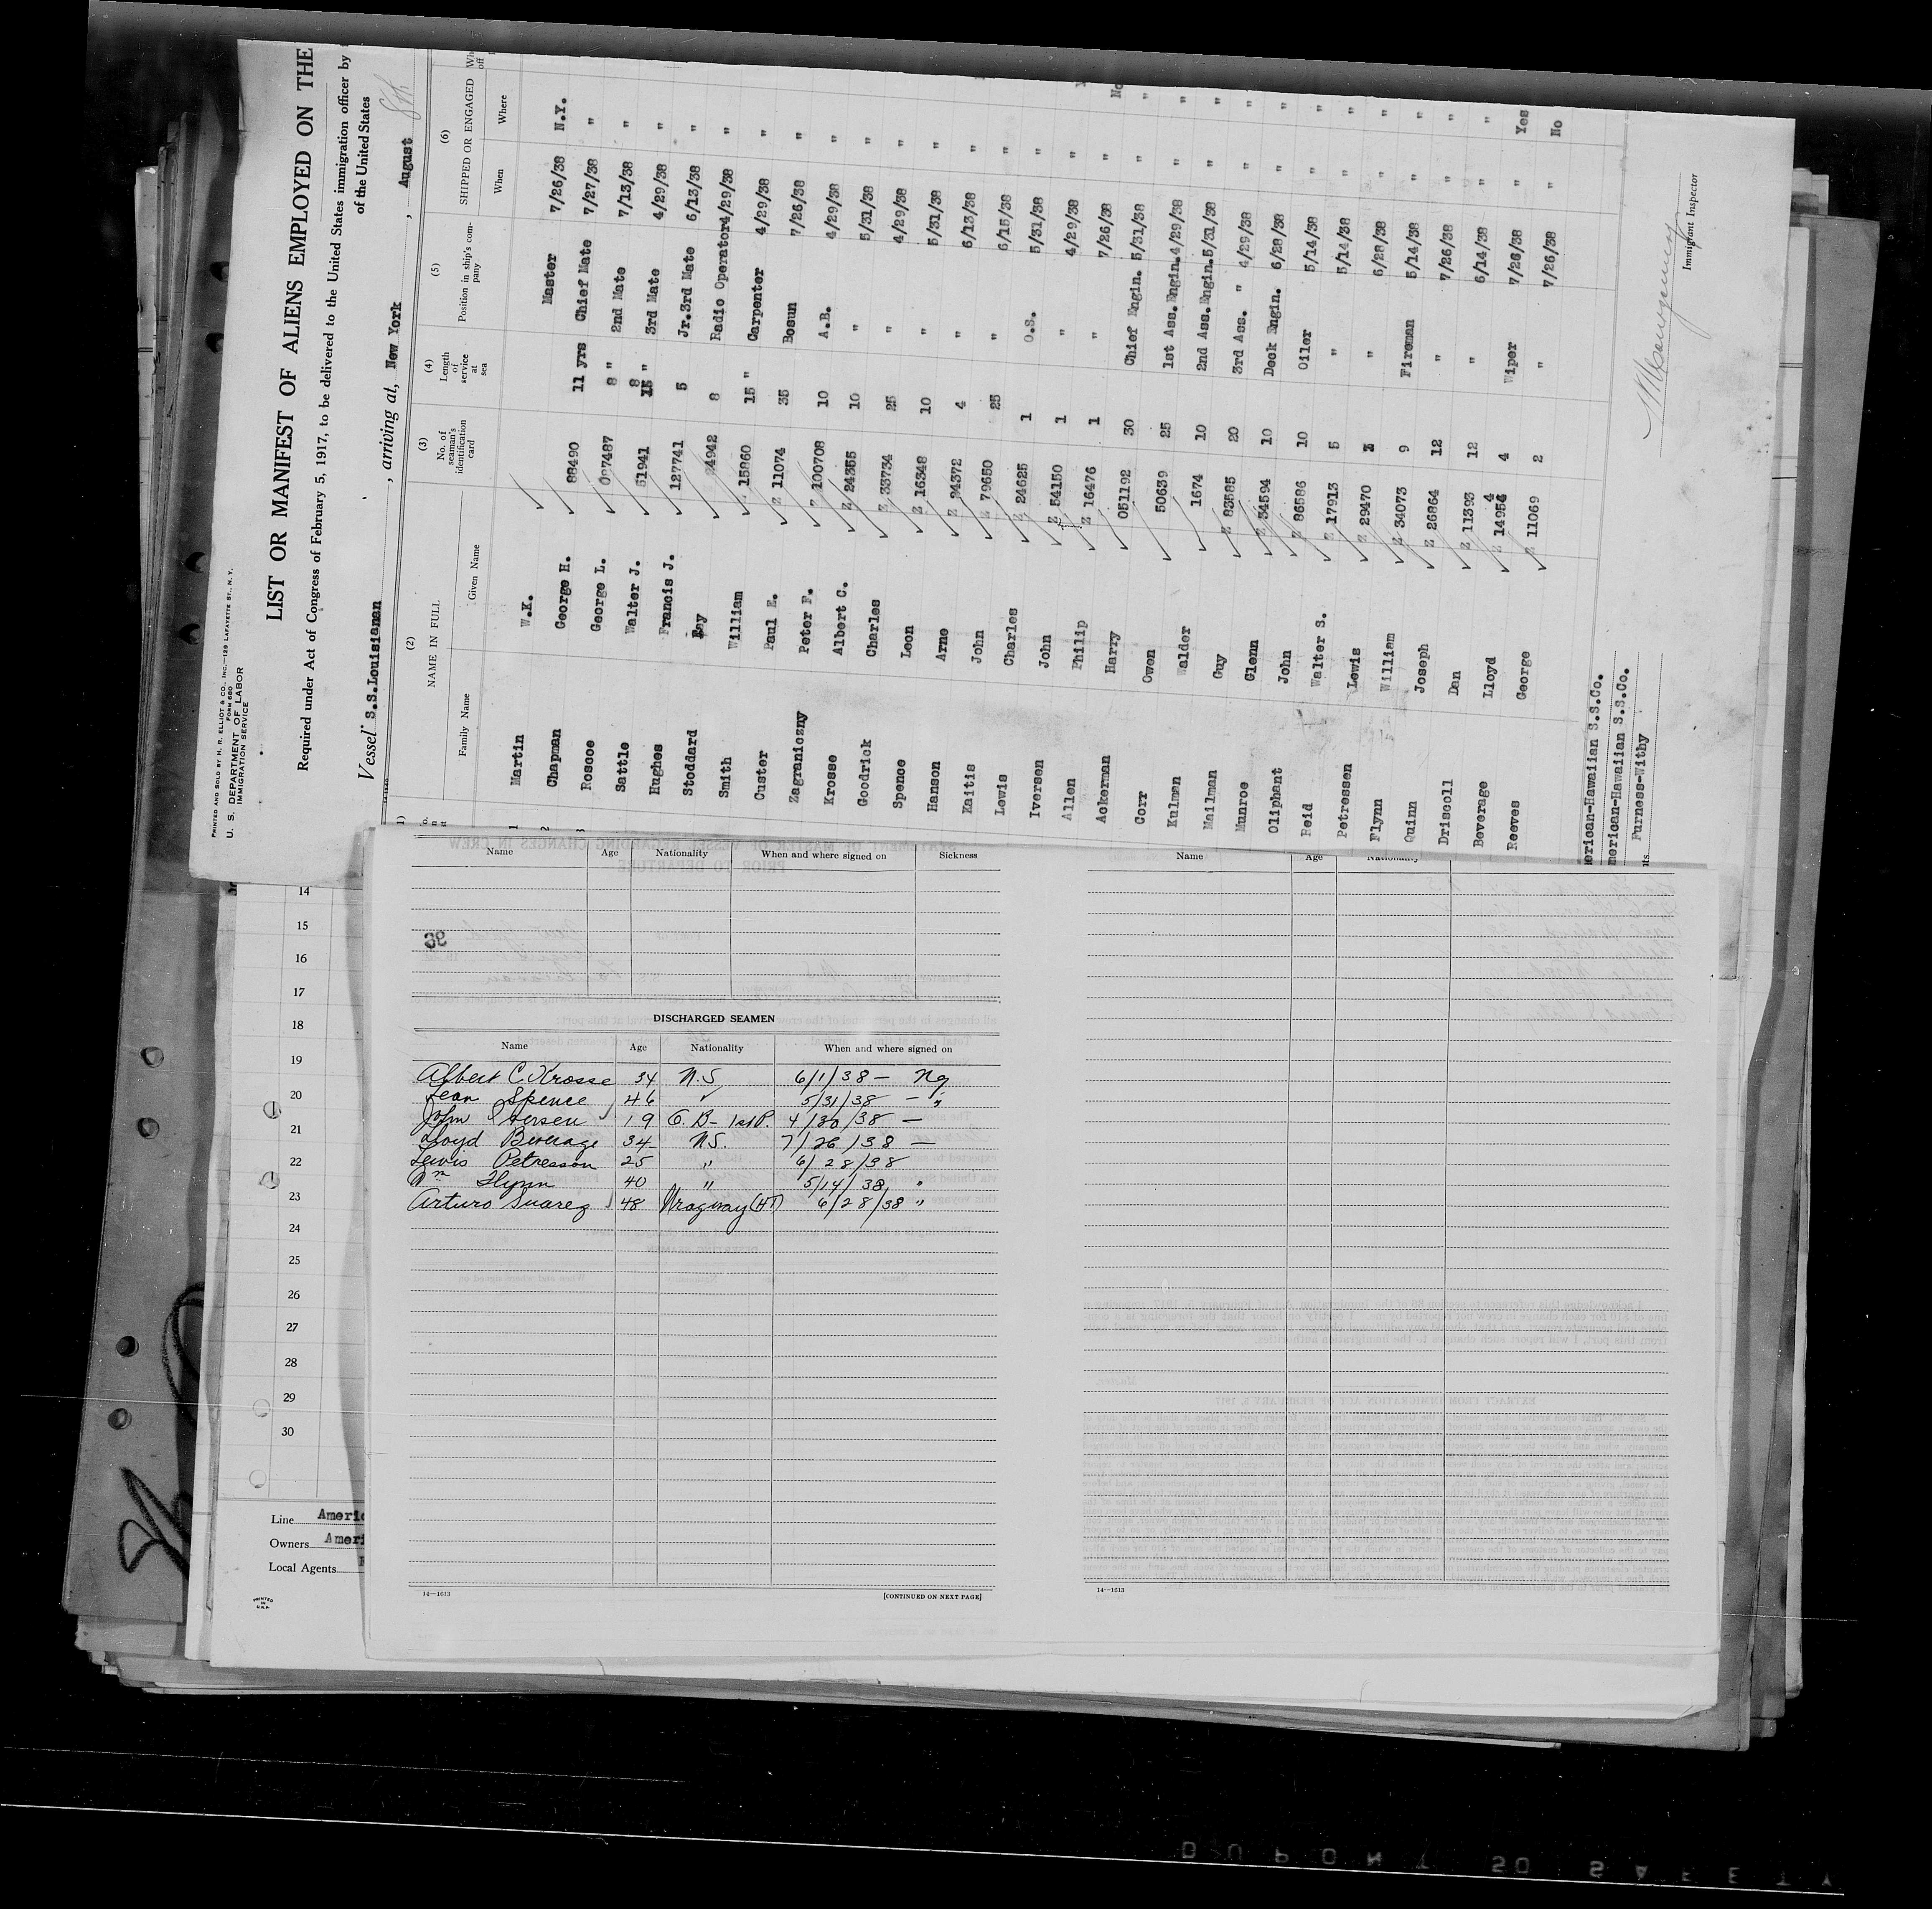 PRINTED AND SOLD BY H. R. ELLIOT & CO., INC.—129 LAFAYETTE ST., N. Y.
FORM 680
U. S. DEPARTMENT OF LABOR
IMMIGRATION SERVICE
LIST OR MANIFEST OF ALIENS EMPLOYED ON THE
Required under Act of Congress of February 5, 1917, to be delivered to the United States immigration officer by
of the United States
Vessel S.S.Louisianan , arriving at, New York , August 8th
(2) NAME IN FULL
Family Name Given Name
(3) No. of seaman's identification card
(4) Length of service at sea
(5) Position in ship's company
(6) SHIPPED OR ENGAGED
When Where
1 Martin W.K. Master 7/26/38 N.Y.
2 Chapman George H. 88490 11 yrs Chief Mate 7/27/38 "
3 Roscoe George L. 8 " 2nd Mate 7/13/38 "
Sattle Walter J. 51941 8 " 3rd Mate 4/29/38 "
Hughes Francis J. 127741 5 Jr.3rd Mate 6/13/38 "
Stoddard Ray 8 Radio Operator 4/29/38 "
Smith William 15860 15 " Carpenter 4/29/38 "
Custer Paul E. Z 11074 35 Bosun 7/26/38 "
Zagraniczny Peter F. Z 100708 10 A.B. 4/29/38 "
Krosse Albert C. Z 24355 10 " 5/31/38 "
Goodrick Charles Z 33734 25 " 4/29/38 "
Spence Leon Z 16348 10 " 5/31/38 "
Hanson Arne Z 4 " 6/13/38 "
Kaitis John Z 79550 25 " 6/15/38 "
Lewis Charles Z 24625 1 O.S. 5/31/38 "
Iversen John Z 54150 1 " 4/29/38 "
Allen Philip Z 16476 1 " 7/26/38 "
Ackerman Harry 051192 30 Chief Engin. 5/31/38 "
Corr Owen 50639 25 1st Ass.Engin. 4/29/38 "
Kulman Walder 1674 10 2nd Ass.Engin. 5/31/38 "
Mailman Guy Z 83585 20 3rd Ass. " 4/29/38 "
Munroe Glenn Z 34594 10 Deck Engin. 6/28/38 "
Oliphant John Z 86586 10 Oiler 5/14/38 "
Reid Walter S. Z 17913 5 " 5/14/38 "
Petressen Lewis Z 29470 " 6/28/38 "
Flynn William Z 34073 9 Fireman 5/14/38 "
Quinn Joseph Z 26864 12 " 7/26/38 "
Driscoll Dan Z 11393 12 " 6/14/38 "
Beverage Lloyd Z 14954 4 Wiper 7/26/38 " Yes
Reeves George Z 11069 2 " 7/26/38 " No
merican-Hawaiian S.S.Co.
merican-Hawaiian S.S.Co.
Furness-Withy
Immigrant Inspector
Name Age Nationality When and where signed on Sickness
DISCHARGED SEAMEN
Name Age Nationality When and where signed on
Albert C. Krosse 34 U.S 6/1/38 — Ny
Leon Spence 46 ✓ 5/31/38 — "
John Iversen 19 G. B— 1stP. 4/30/38 —
Lloyd Beverage 34 U.S. 7/26/38 —
Lewis Petresson 25 " 6/28/38
Wm Flynn 40 " 5/14/38 "
Arturo Suarez 48 Uraguay (HT) 6/28/38 "
14—1613
[CONTINUED ON NEXT PAGE]
Name Age Nationality
14—1613
14
15
16
17
18
19
20
21
22
23
24
25
26
27
28
29
30
Line Americ
Owners Ameri
Local Agents
PRINTED IN U.S.A.
DUPONT SAFETY